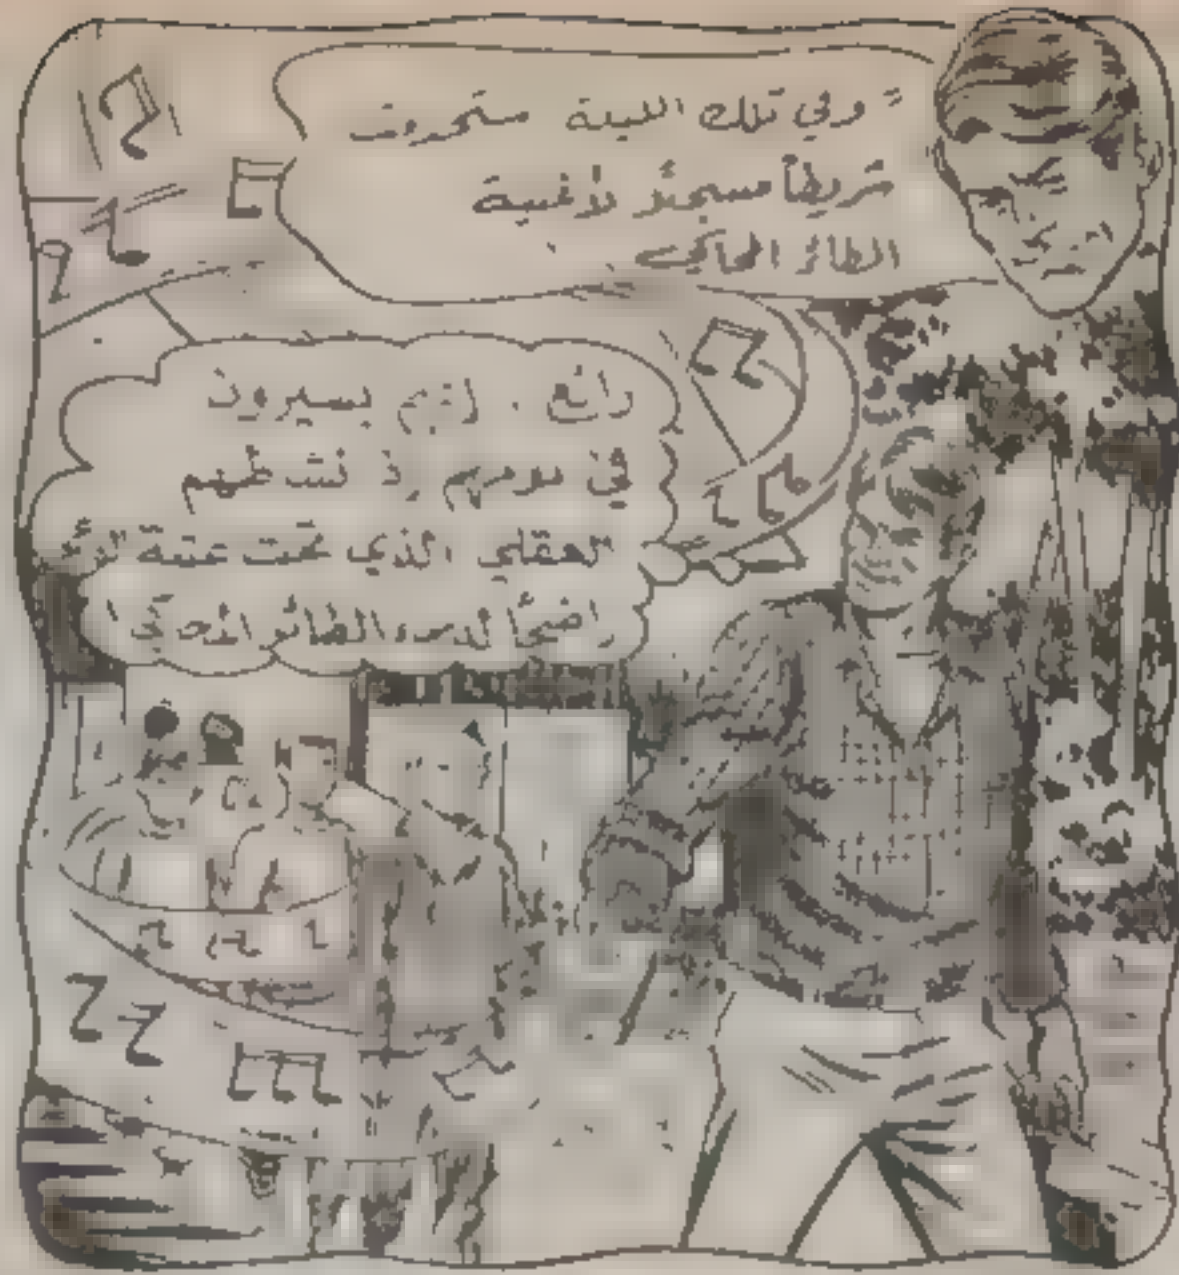 " وفي تلك الليلة ستجدون
شريطاً مسجلاً لأغنية
الطائر المحاكي
رائع . إنهم يسيرون
في نومهم إذ نشطهم
العقلي الذي تحت عتبة
لنداء الطائر المحاكي